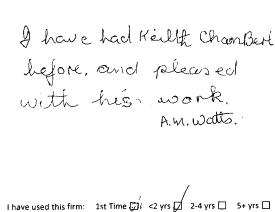 I have had Keilth Chambers
before, and pleased
with his work.
A.M. Watts.
I have used this firm: 1st Time ☑ <2 yrs ☑ 2-4 yrs ☐ 5+ yrs ☐